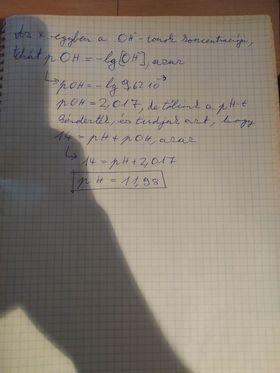 Az x egyben a OH⁻-ionok koncentrációja,
tehát pOH = -lg[OH], azaz
↳ pOH = -lg 9,62·10⁻³
pOH = 2,017, de tőlünk a pH-t
kérdezték, és tudjuk azt, hogy
14 = pH + pOH, azaz
↳ 14 = pH + 2,017
pH = 11,98